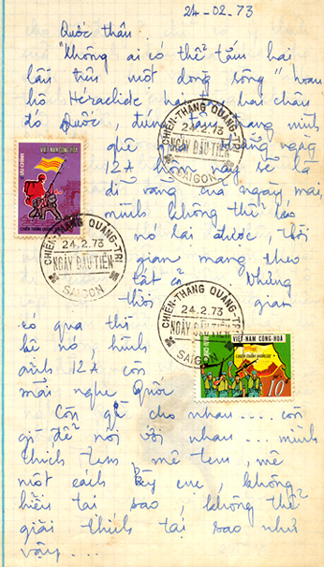 24-02.73
Quốc thân.
"Không ai có thể tắm hai
lần trên một dòng sông" hoan
hô Héraclide hai chân
đó Quốc, đúng mình
ghế ngay
12A hôm nay sẽ là
dĩ vãng của ngày mai,
mình không thể
nó lại được thời
gian mang theo
tất cả. Nhưng
thời gian
có qua thì
kệ nó, hình
ảnh 12A còn
mãi nghe Quốc
Còn gì cho nhau.... còn
gì để nói với nhau... mình
thích tem mê tem, mê
một cách kỳ cục, không
hiểu tại sao, không thể
giải thích tại sao như
vậy....
CHIẾN-THẮNG QUẢNG-TRỊ
24.2.73
NGÀY ĐẦU TIÊN
SAIGON
VIỆT-NAM CỘNG-HÒA
BƯU-CHÍNH
CHIẾN-THẮNG QUẢNG-TRỊ
24.2.73
NGÀY ĐẦU TIÊN
SAIGON
CHIẾN-THẮNG QUẢNG-TRỊ
24.2.73
NGÀY ĐẦU TIÊN
SAIGON
VIỆT-NAM CỘNG-HÒA
10